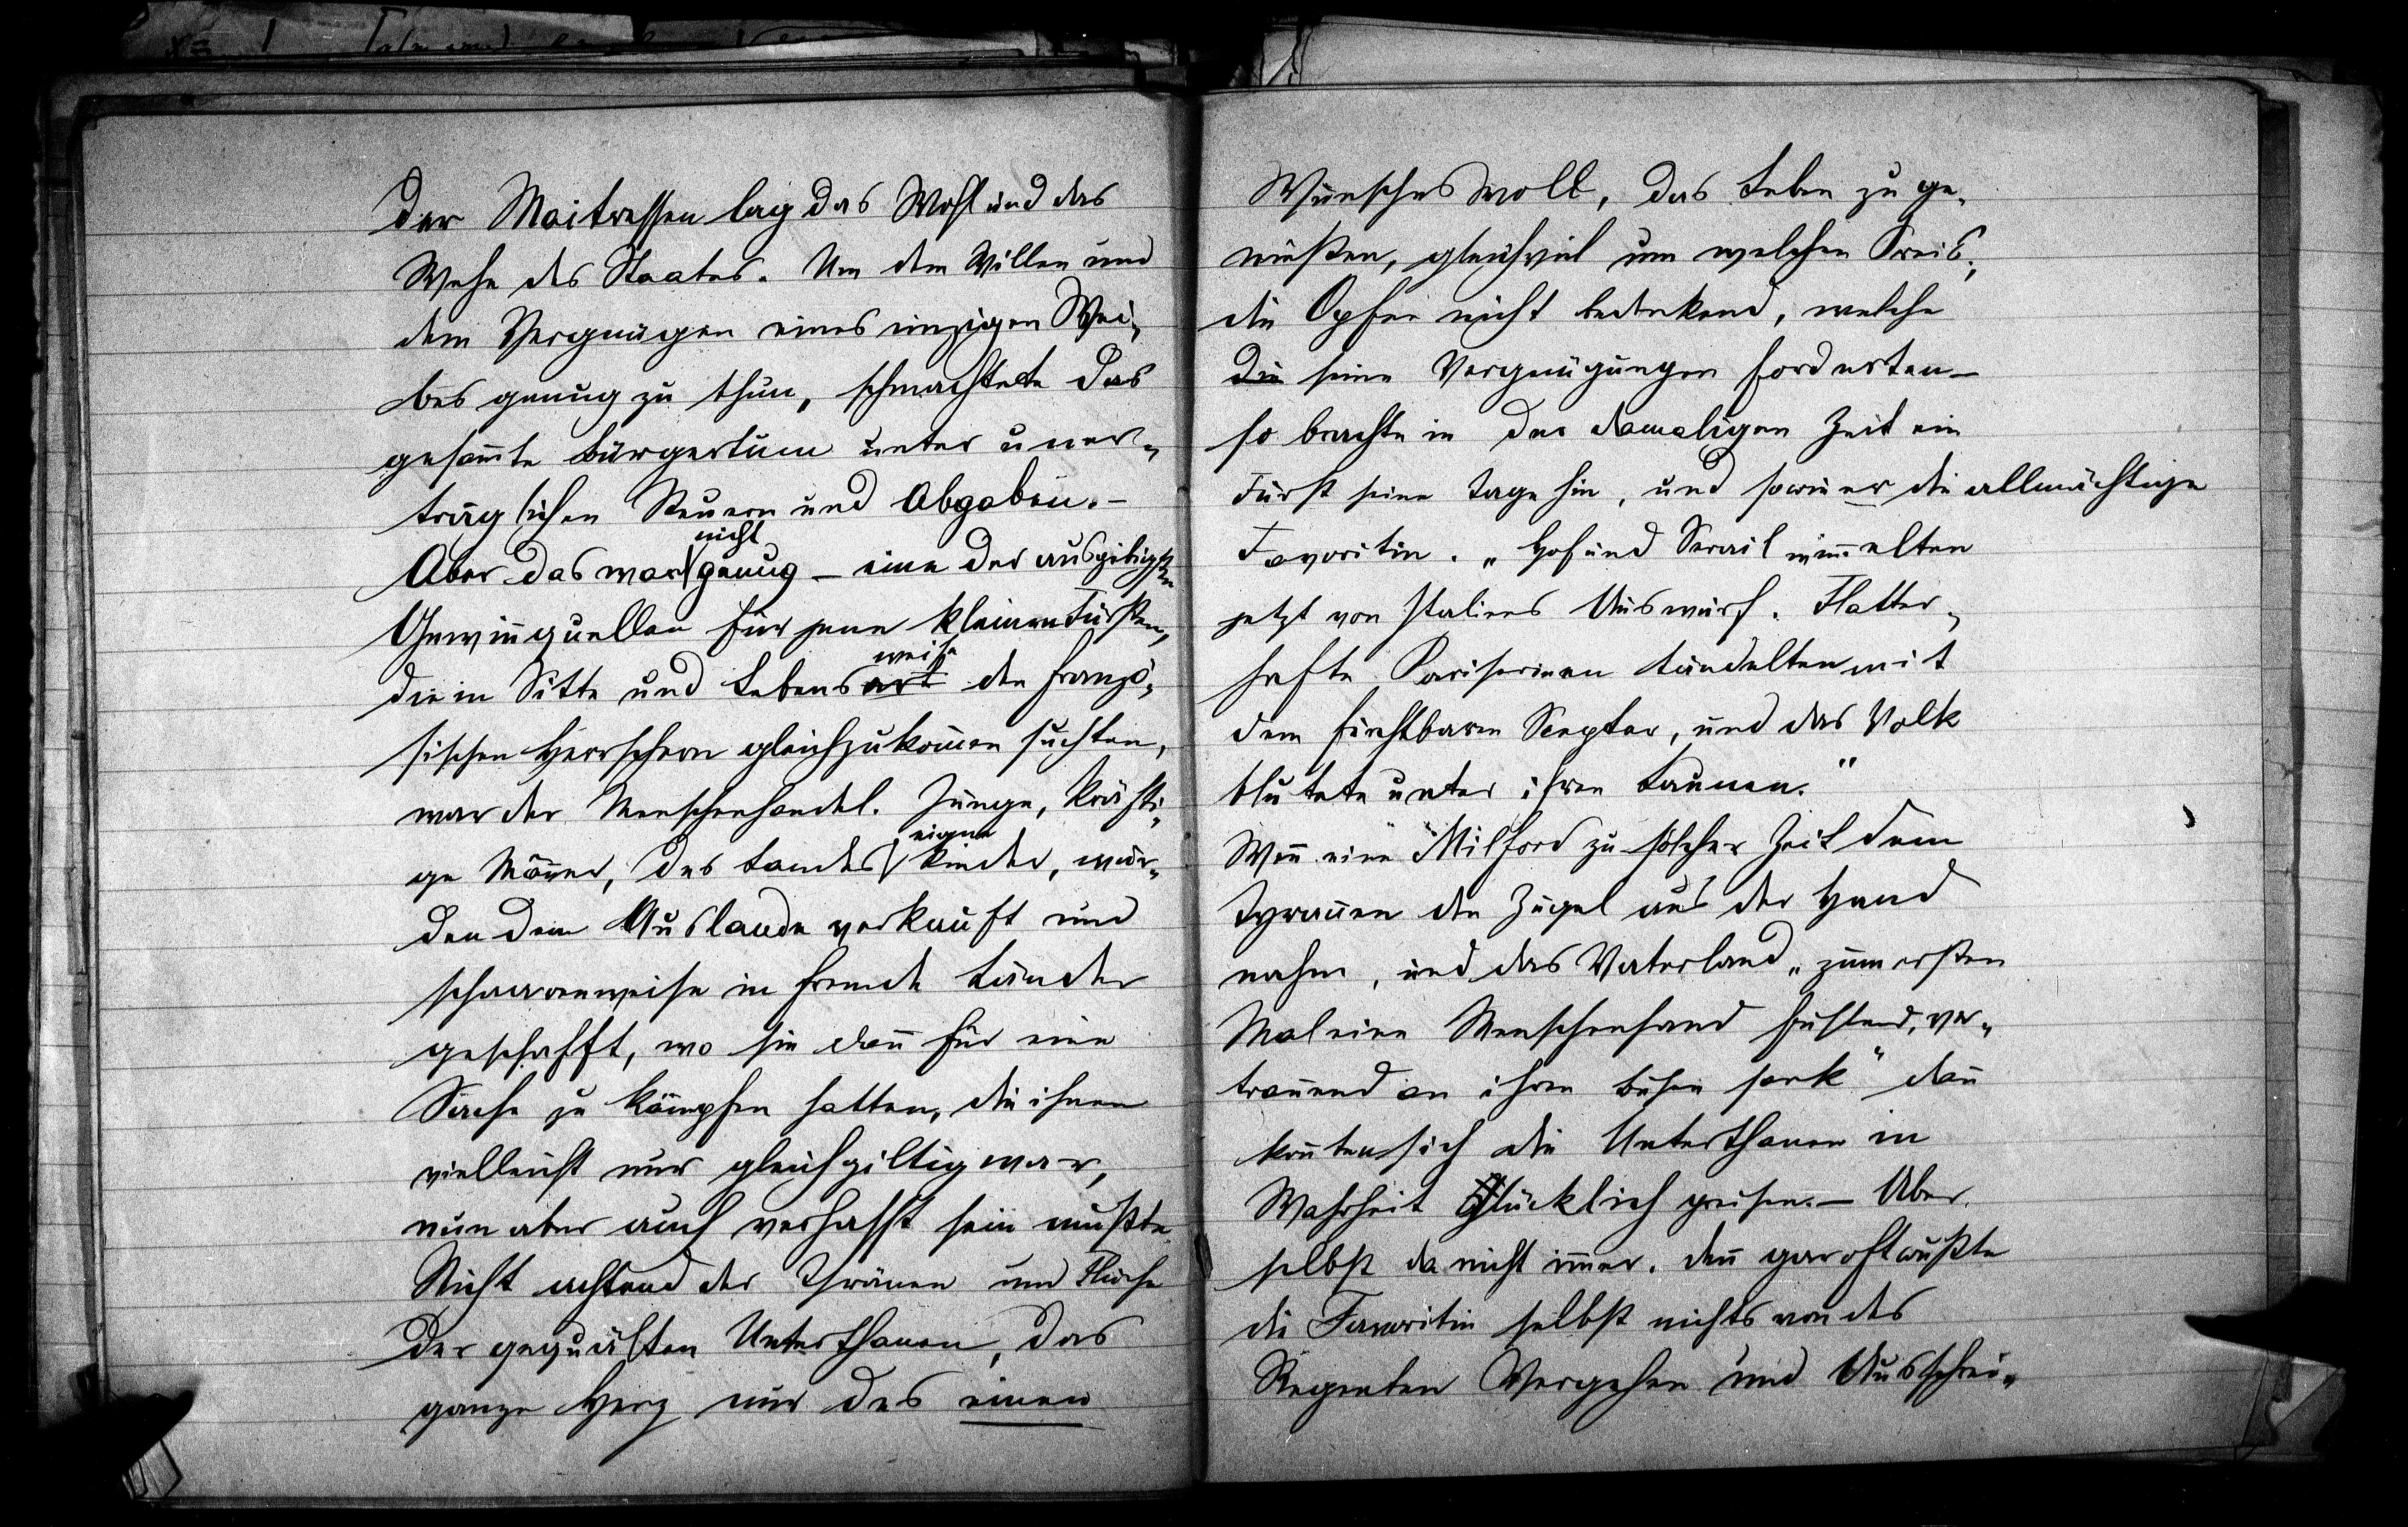 der Maitressen lag das Wohl und das
Wehe des Staates. Um dem Willen und
dem Vergnügen eines einzigen Wei-
bes genug zu thun, schmachtete das
gesam̄te Bürgertum unter uner-
träglichen Steuern und Abgaben. –
nicht
Aber das war genug – eine der ausgibigsten
Gewin̄quellen für jene kleinen Fürsten,
weise
die in Sitte und Lebensart den franzö-
sischen Herrschern gleichzukom̄en suchten,
war der Menschenhandel. Junge, kräfti-
eigne
ge Män̄er, des Landes Kinder, wur-
den dem Auslande verkauft und
schaarenweise in fremde Länder
geschafft, wo sie dan̄ für eine
Sache zu kämpfen hatten, die ihnen
vielleicht nur gleichgiltig war,
nun aber auch verhasst sein mußte.
Nicht achtend der Thränen und Flüche
der gequälten Unterthanen, das
ganze Herz nur des einen
Wunsches voll, das Leben zu ge-
nießen, gleichviel um welchen Preis,
die Opfer nicht bedenkend, welche
die seine Vergnügungen forderten –
so brachte in der damaligen Zeit ein
Fürst seine Tage hin, und sowie er die allmächtige
Favoritin. „Hof und Serail wim̄elten
jetzt von Italiens Auswurf. Flatter-
hafte Pariserinen tändelten mit
dem furchtbaren Scepter, und das Volk
blutete unter ihren Launen.“
Wen̄ eine Milford zu solcher Zeit dem
Tyran̄en den Zügel aus der Hand
nahm, und das Vaterland „zum ersten
Mal eine Menschenhand fühlend, ver-
trauend an ihren Busen sank“ dan̄
kon̄ten sich die Unterthanen in
Wahrheit glücklich preisen. – Aber
selbst da nicht im̄er. Den̄ gar oft wußte
die Favoritin selbst nichts von des
Regenten Vergehen und Ausschrei-